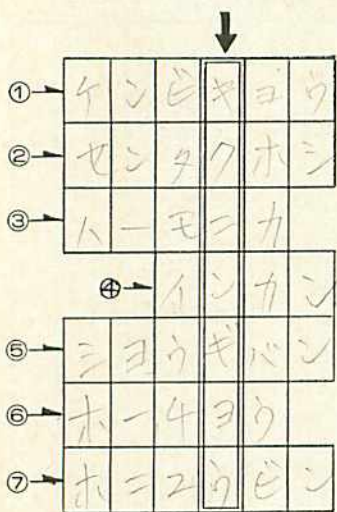 ① ケンビキョウ
② センタクホシ
③ ハーモニカ
④ インカン
⑤ ショウギバン
⑥ ホーチョウ
⑦ ホニュウビン